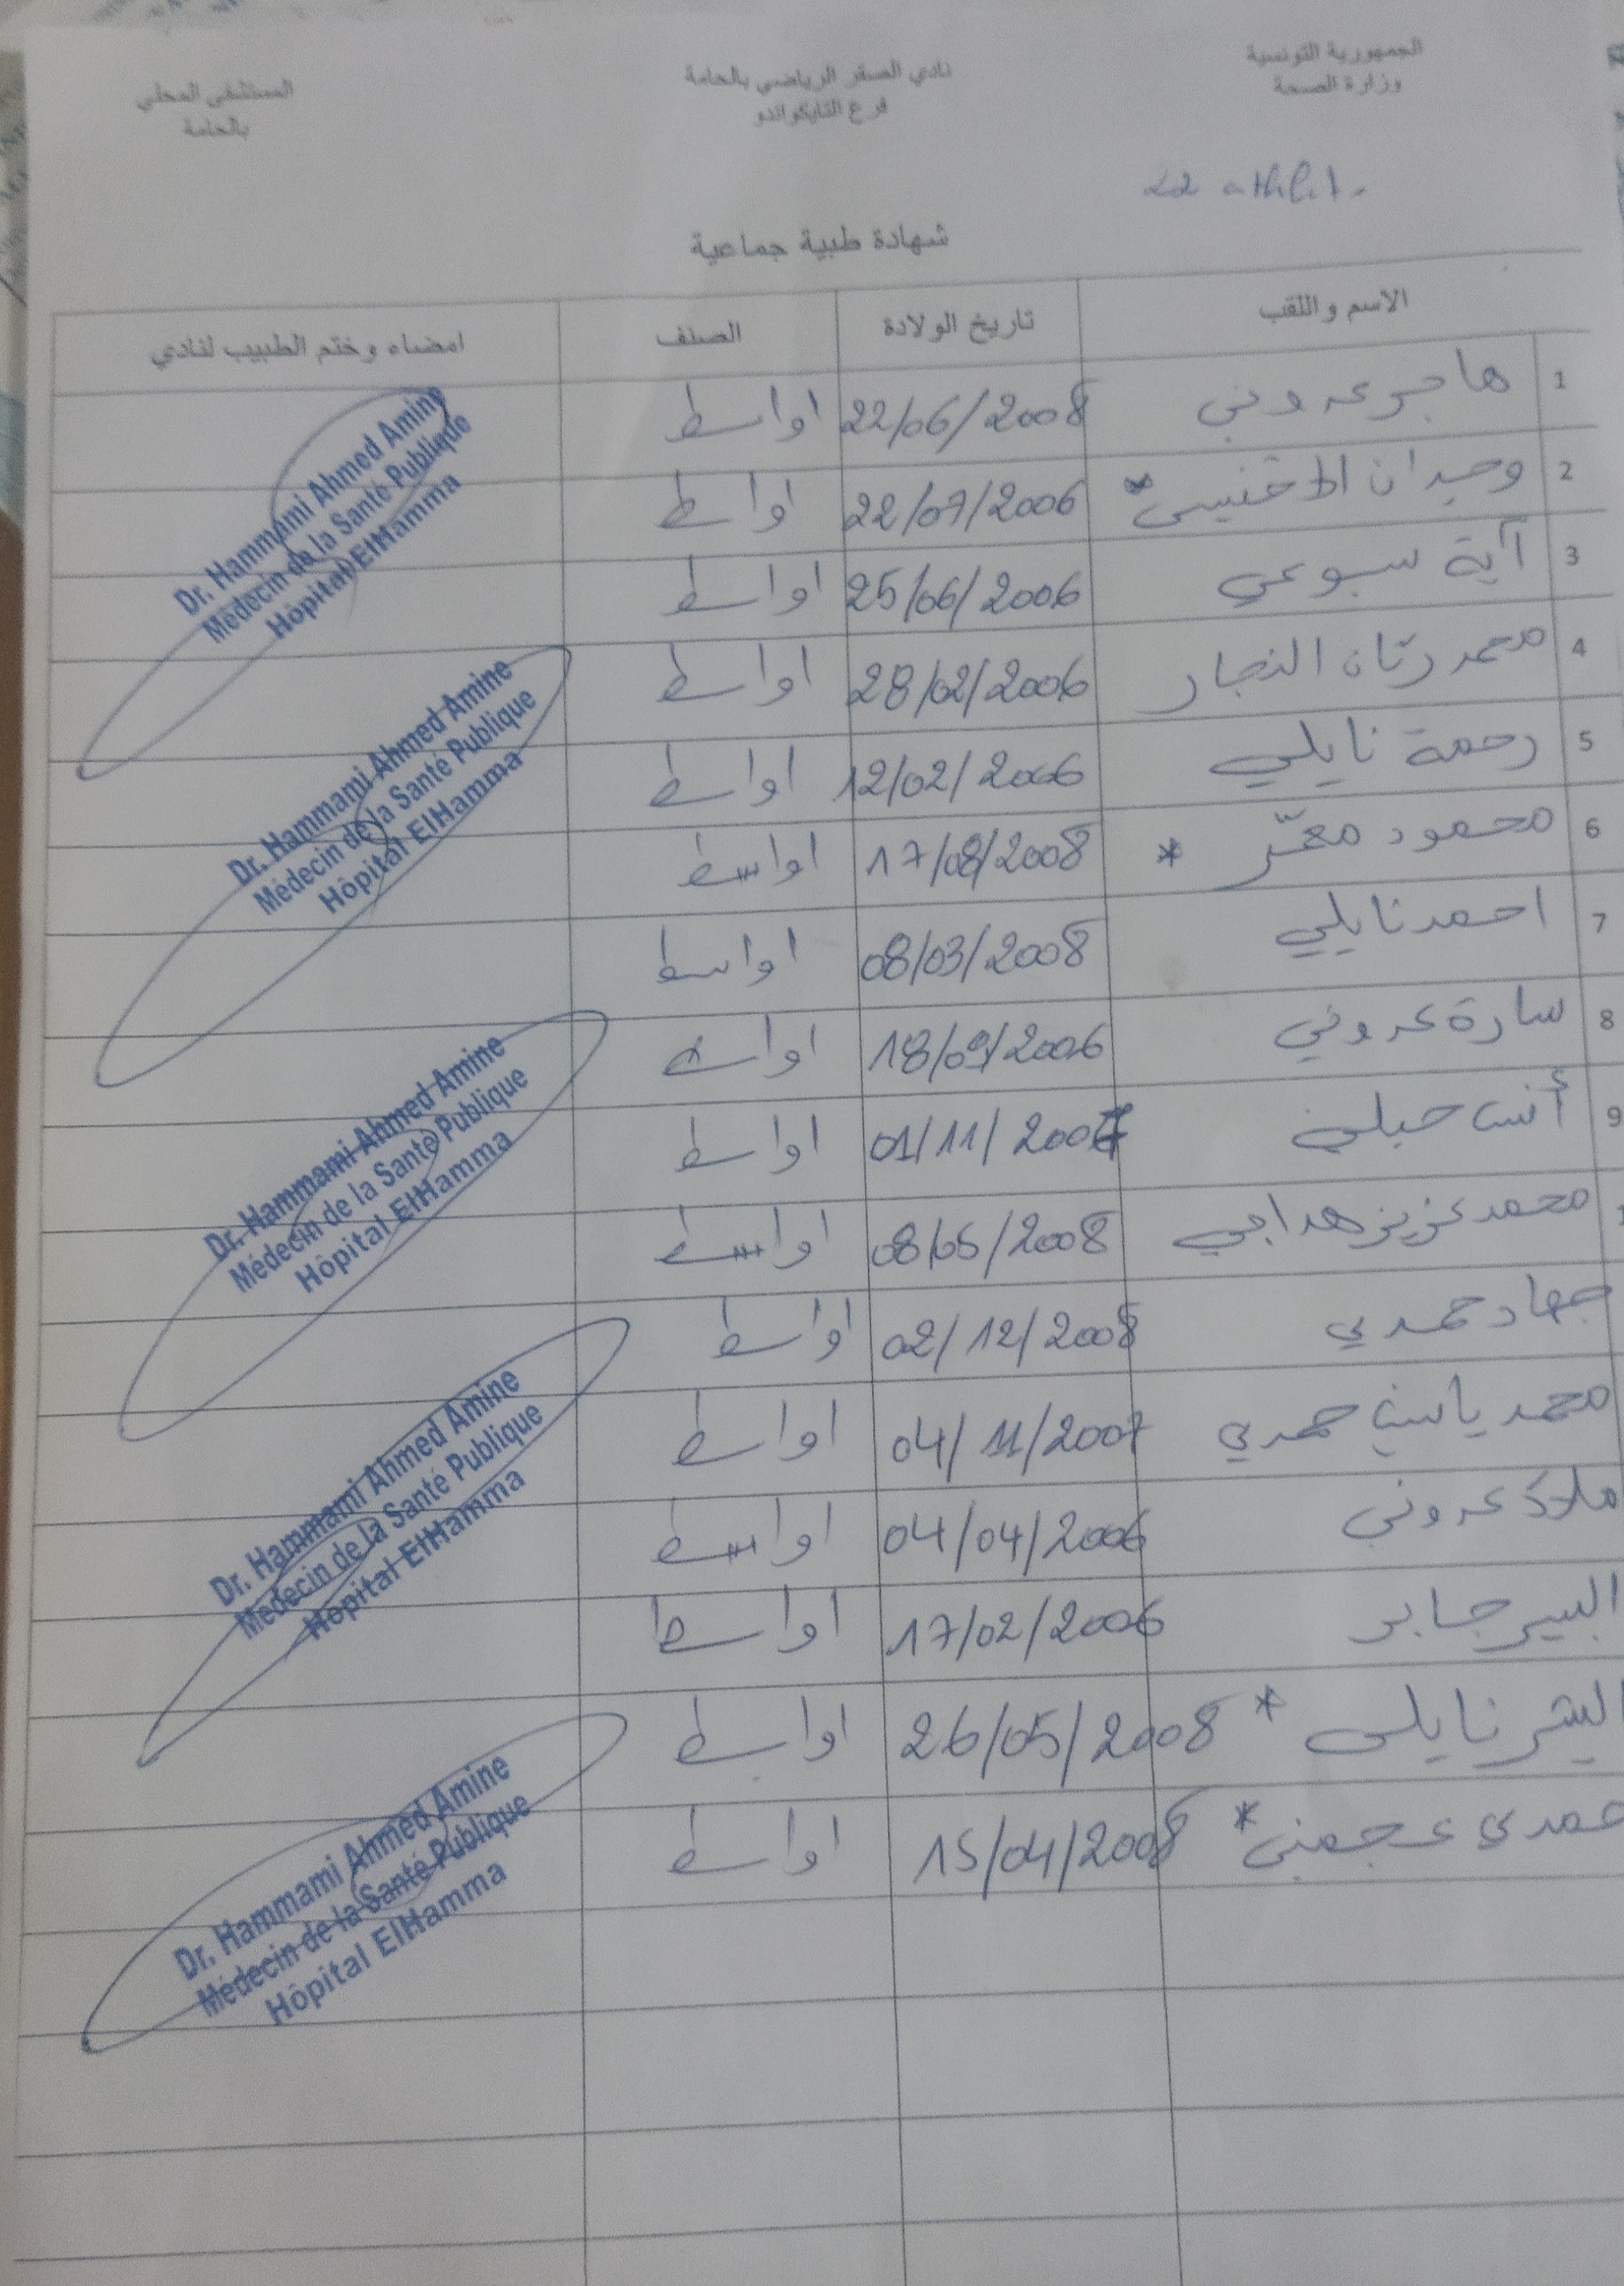 الجمهورية التونسية
وزارة الصحة
نادي الصقر الرياضي بالحامة
فرع التايكواندو
المستشفى المحلي
بالحامة
22
شهادة طبية جماعية
الاسم واللقب تاريخ الولادة الصنف امضاء وختم الطبيب لنادي
1 هاجر عروني 22/06/2008 اواسط
2 وجدان * 22/07/2006 اواسط
3 آية سبوعي 25/06/2006 اواسط
4 محمد ريان النجار 28/02/2006 اواسط
5 رحمة نايلي 12/02/2006 اواسط
6 محمود معمّر * 17/08/2008 اواسط
7 احمد نايلي 08/03/2008 اواسط
8 سارة عروني 18/09/2006 اواسط
9 أنس 01/11/2007 اواسط
محمد عزيز هداجي 08/05/2008 اواسط
جهاد حمدي 02/12/2008 اواسط
محمد ياسين حمدي 04/11/2007 اواسط
ملاك عروني 04/04/2006 اواسط
جابر 17/02/2006 اواسط
نايلي * 26/05/2008 اواسط
حمدي عجمني * 15/04/2008 اواسط
Dr. Hammami Ahmed Amine
Médecin de la Santé Publique
Hôpital ElHamma
Dr. Hammami Ahmed Amine
Médecin de la Santé Publique
Hôpital ElHamma
Dr. Hammami Ahmed Amine
Médecin de la Santé Publique
Hôpital ElHamma
Dr. Hammami Ahmed Amine
Médecin de la Santé Publique
Hôpital ElHamma
Dr. Hammami Ahmed Amine
Médecin de la Santé Publique
Hôpital ElHamma